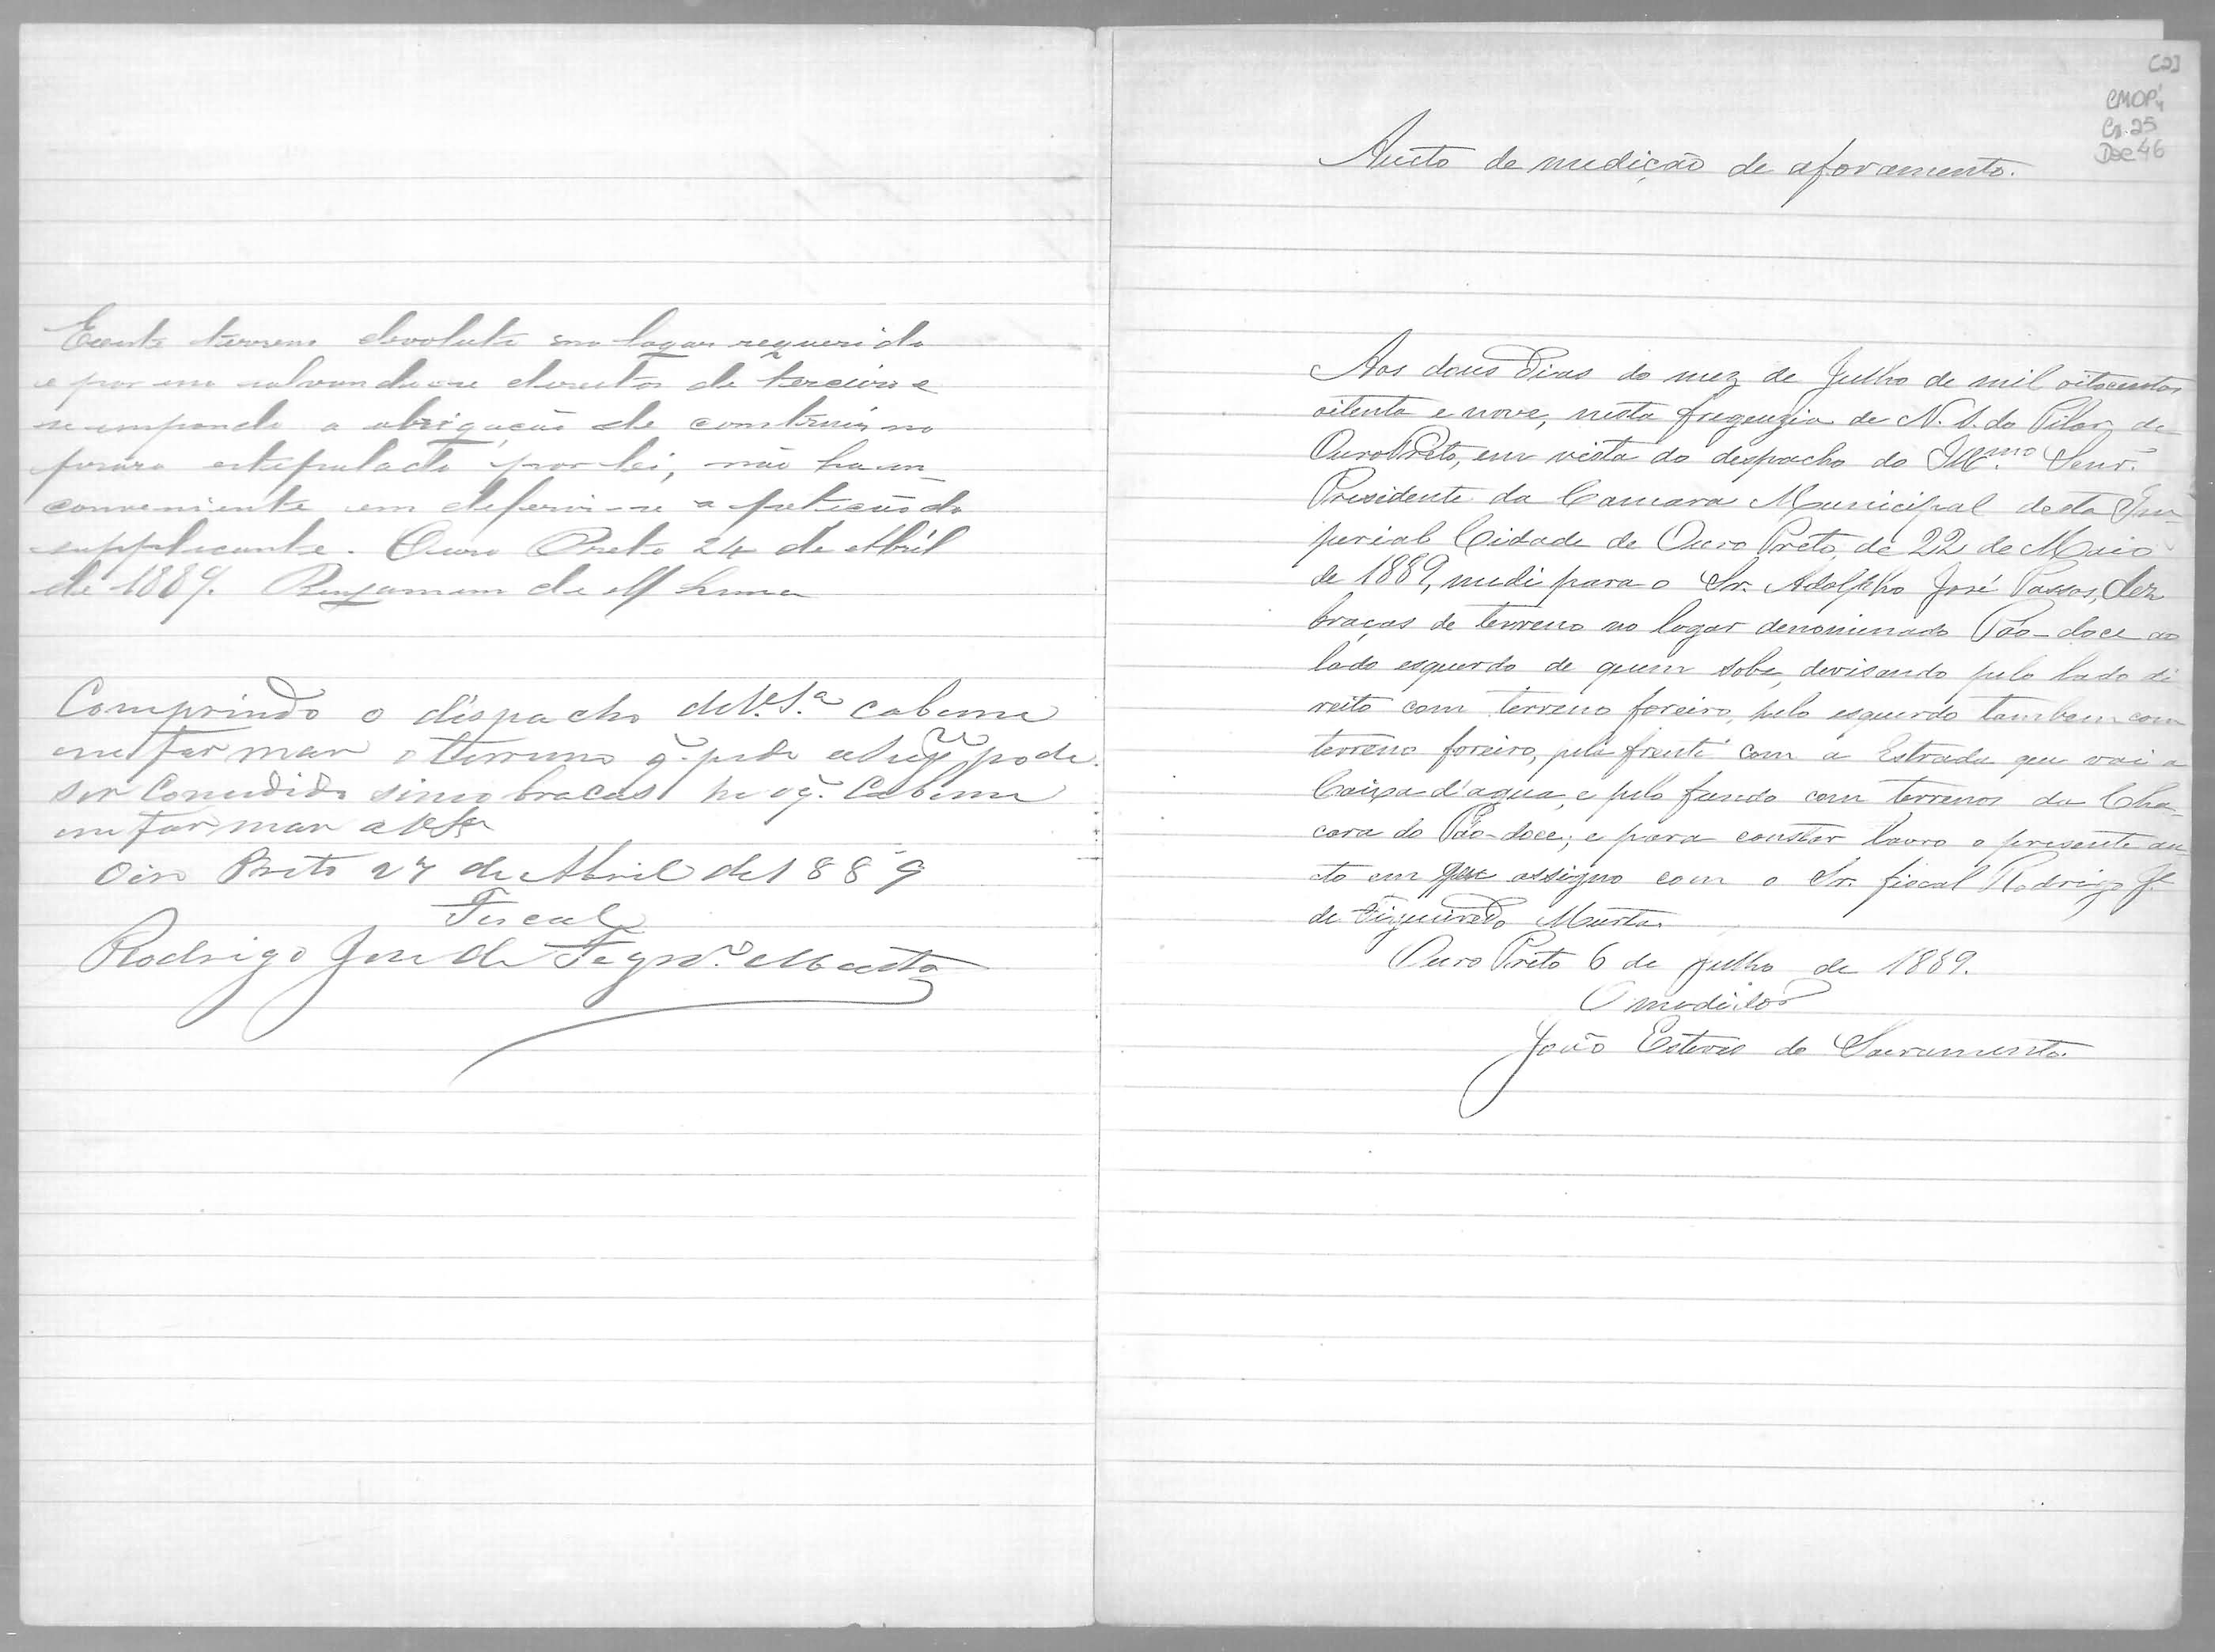 Existe terreno devoluto no logar requerido
e por mo salvando-se direitos de terceiro e
se impondo a obrigação de construir no
praso estipulado por lei, não ha in-
conveniente em deferir-se a petição do
supplicante. Ouro Preto 24 de Abril
de 1889. Benjamim de
Comprindo o dispacho de V.S.ª cabeme
emfarmar o terreno q. pede pode
ser Comcidido sinco bracas he o q. Cabeme
emfarmar a V.Sª
Oiro Preto 27 de Abril de 1889
Fiscal
Rodrigo Jose de Figrdo. Murta
[2]
CMOP
Cx. 25
Doc 46
Aucto de medição de aforamento.
Aos dous Dias do mez de Julho de mil oitocentos
oitenta e nove, nesta fregeuzia de N. S. do Pilar de
Ouro Preto, em vista do despacho do Illmo. Senr.
Presidente da Camara Municipal desta Im-
perial Cidade de Ouro Preto, de 22 de Maio
de 1889, medi para o Sr. Adolpho José Passos, dez
braças de terreno no logar denominado Páo-doce ao
lado esquerdo de quem sobe, devisando pelo lado di
reito com terreno foreiro, pelo esquerdo tambem com
terreno foreiro, pela frente com a Estrada que vai a
Caixa d'agua, e pelo fundo com terrenos da Cha-
cara do Páo-doce; e para constar lavro o presente au
cto em que assigno com o Sr. fiscal Rodrigo Je.
de Figueiredo Murta.
Ouro Preto 6 de Julho de 1889.
O medidor
João Esteves do Sacramento.